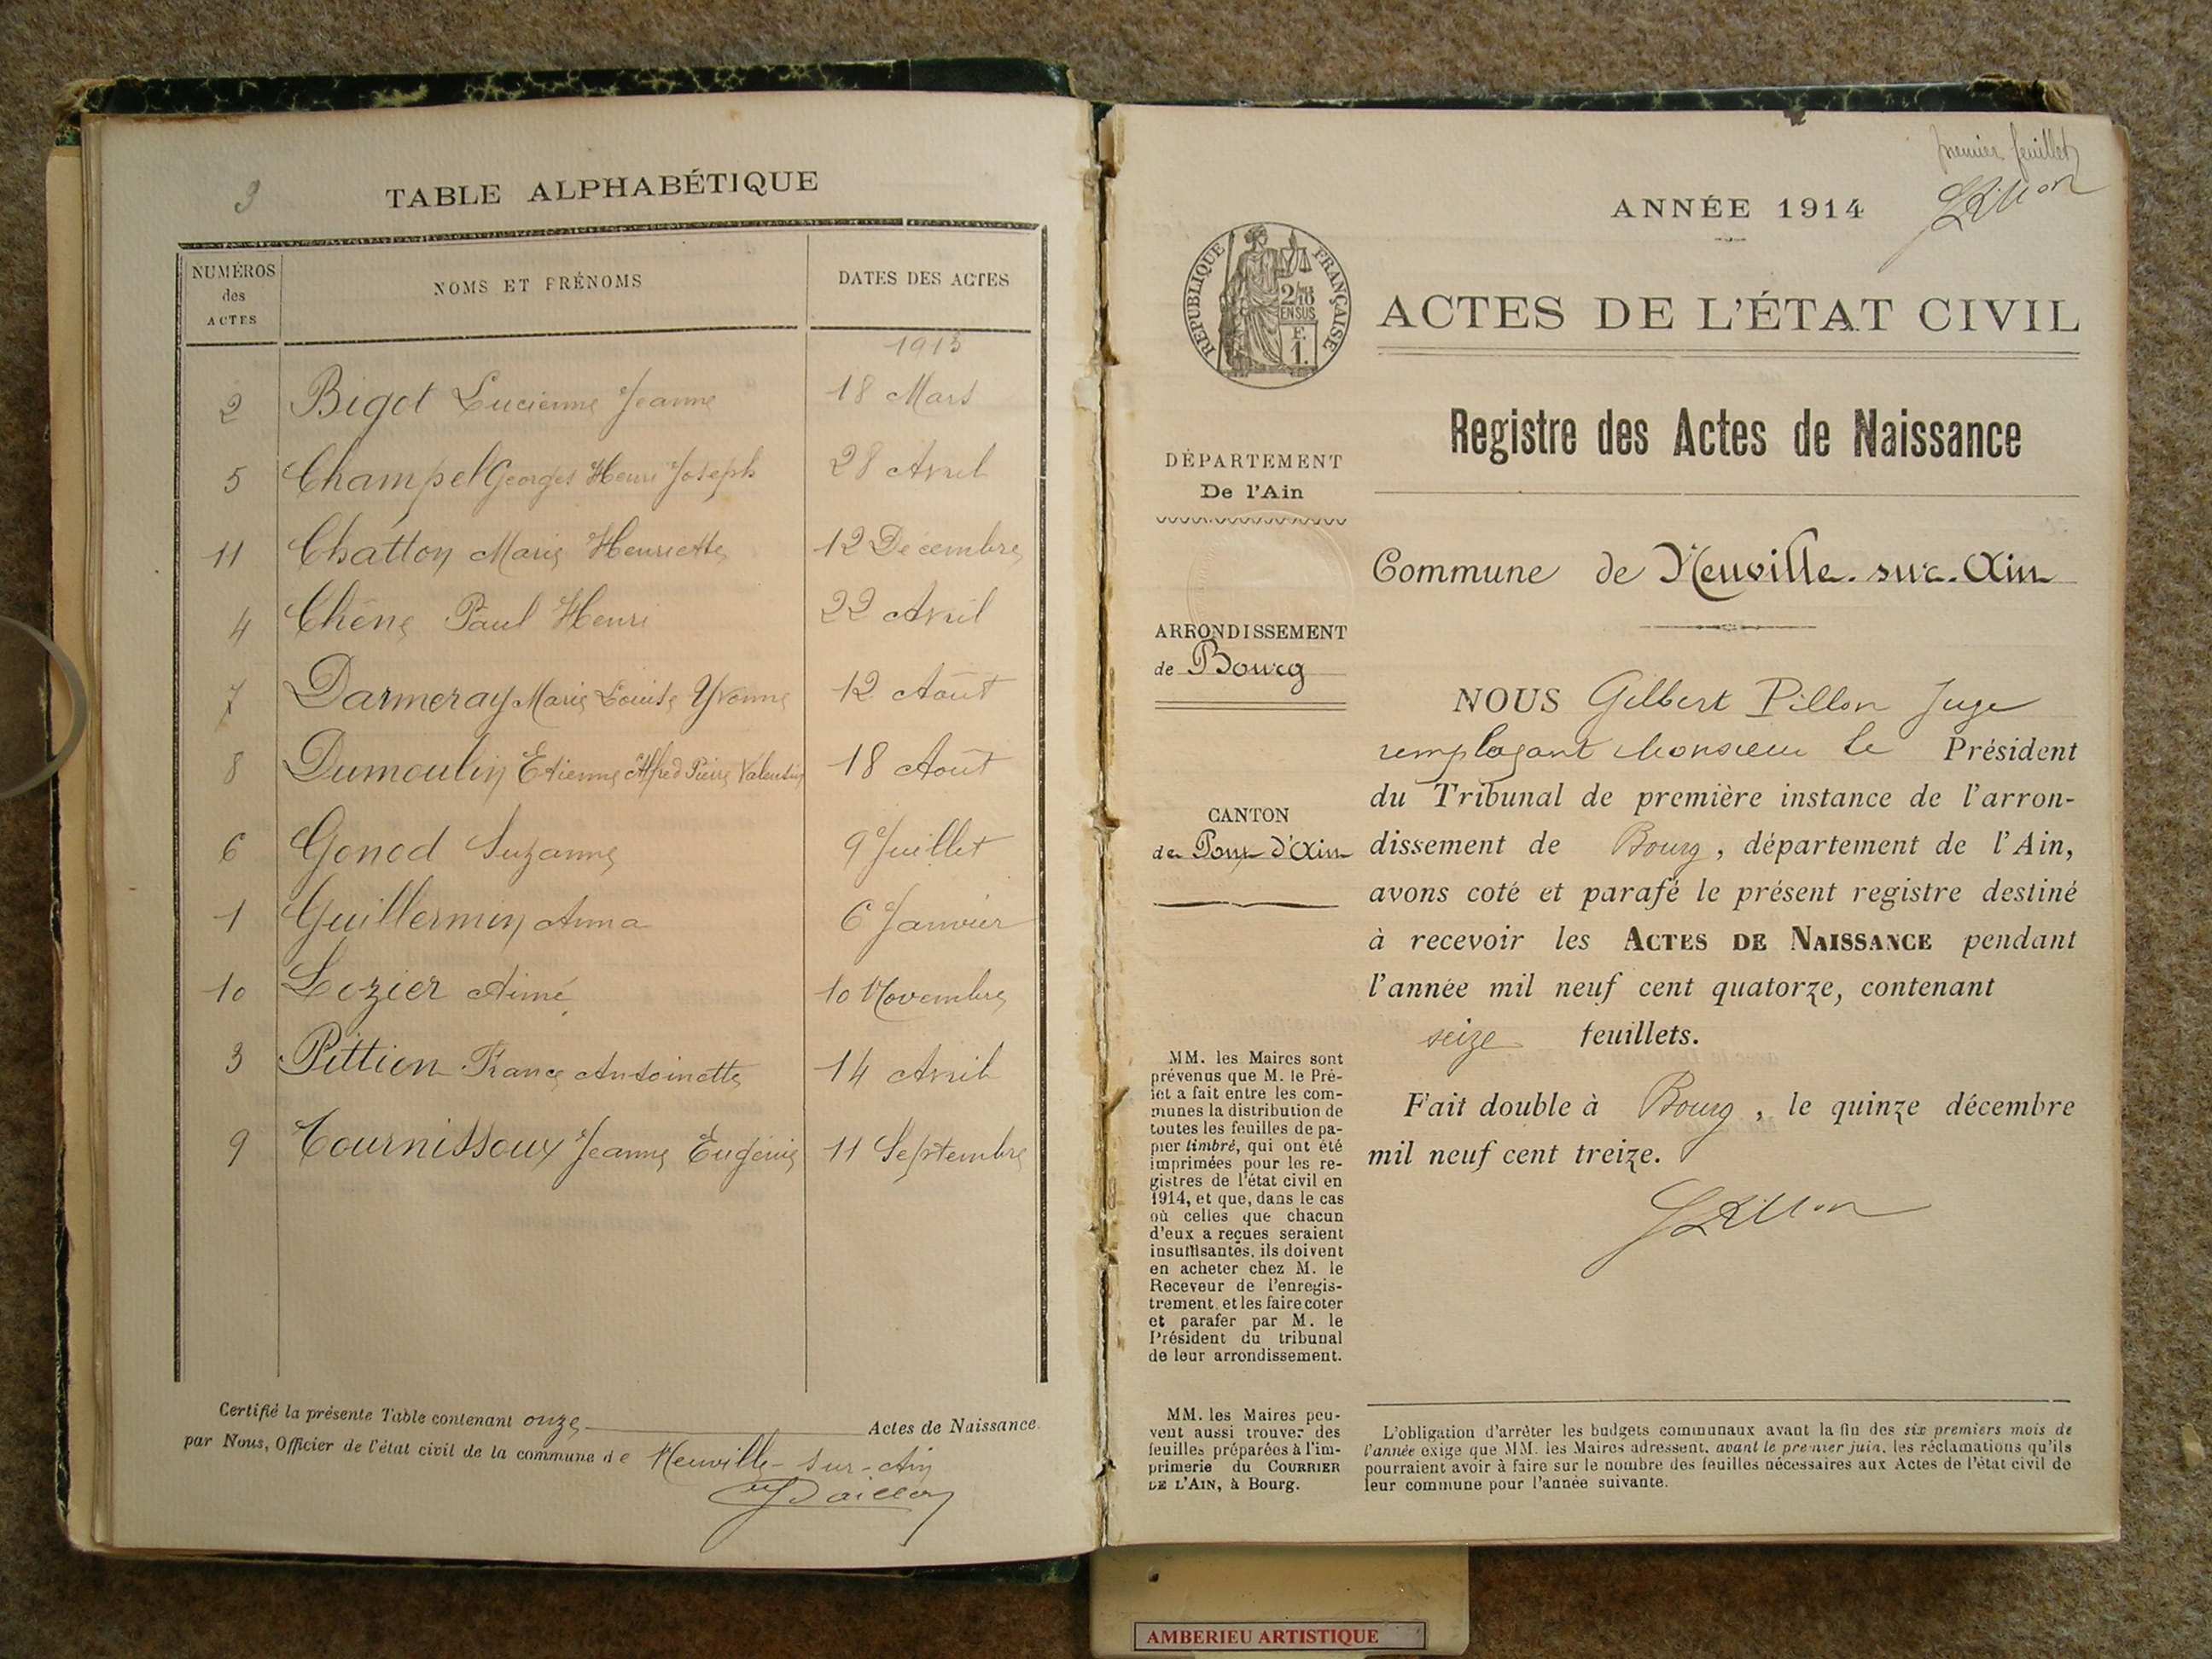 9
TABLE ALPHABÉTIQUE
NUMÉROS des ACTES NOMS ET PRÉNOMS DATES DES ACTES
1913
2 Bigot Lucienne Jeanne 18 Mars
5 Champel Georges Henri Joseph 28 Avril
11 Chatton Marie Henriette 12 Décembre
4 Chêne Paul Henri 22 Avril
7 Darmeray Marie Louise Yvonne 12 Août
8 Dumoulin Etienne Alfred Pierre Valentin 18 Août
6 Gonod Suzanne 9 Juillet
1 Guillermin Anna 6 Janvier
10 Lozier Aimé 10 Novembre
3 Pittion France Antoinette 14 Avril
9 Tournissoux Jeanne Eugénie 11 Septembre
Certifié la présente Table contenant onze Actes de Naissance
par Nous, Officier de l'état civil de la commune de Neuville-sur-Ain
premier feuillet
GPillon
ANNÉE 1914
RÉPUBLIQUE FRANÇAISE
2/10
EN SUS
F.
1.
ACTES DE L'ÉTAT CIVIL
Registre des Actes de Naissance
DÉPARTEMENT
De l'Ain
Commune de Neuville-sur-Ain
ARRONDISSEMENT
de Bourg
CANTON
de Pont d'Ain
NOUS Gilbert Pillon Juge
remplaçant Monsieur le Président
du Tribunal de première instance de l'arron-
dissement de Bourg, département de l'Ain,
avons coté et parafé le présent registre destiné
à recevoir les ACTES DE NAISSANCE pendant
l'année mil neuf cent quatorze, contenant
seize feuillets.
Fait double à Bourg, le quinze décembre
mil neuf cent treize.
GPillon
MM. les Maires sont
prévenus que M. le Pré-
fet a fait entre les com-
munes la distribution de
toutes les feuilles de pa-
pier timbré, qui ont été
imprimées pour les re-
gistres de l'état civil en
1914, et que, dans le cas
où celles que chacun
d'eux a reçues seraient
insuffisantes, ils doivent
en acheter chez M. le
Receveur de l'enregis-
trement, et les faire coter
et parafer par M. le
Président du tribunal
de leur arrondissement.
MM. les Maires peu-
vent aussi trouver des
feuilles préparées à l'im-
primerie du COURRIER
DE L'AIN, à Bourg.
L'obligation d'arrêter les budgets communaux avant la fin des six premiers mois de
l'année exige que MM. les Maires adressent, avant le premier juin, les réclamations qu'ils
pourraient avoir à faire sur le nombre des feuilles nécessaires aux Actes de l'état civil de
leur commune pour l'année suivante.
AMBERIEU ARTISTIQUE